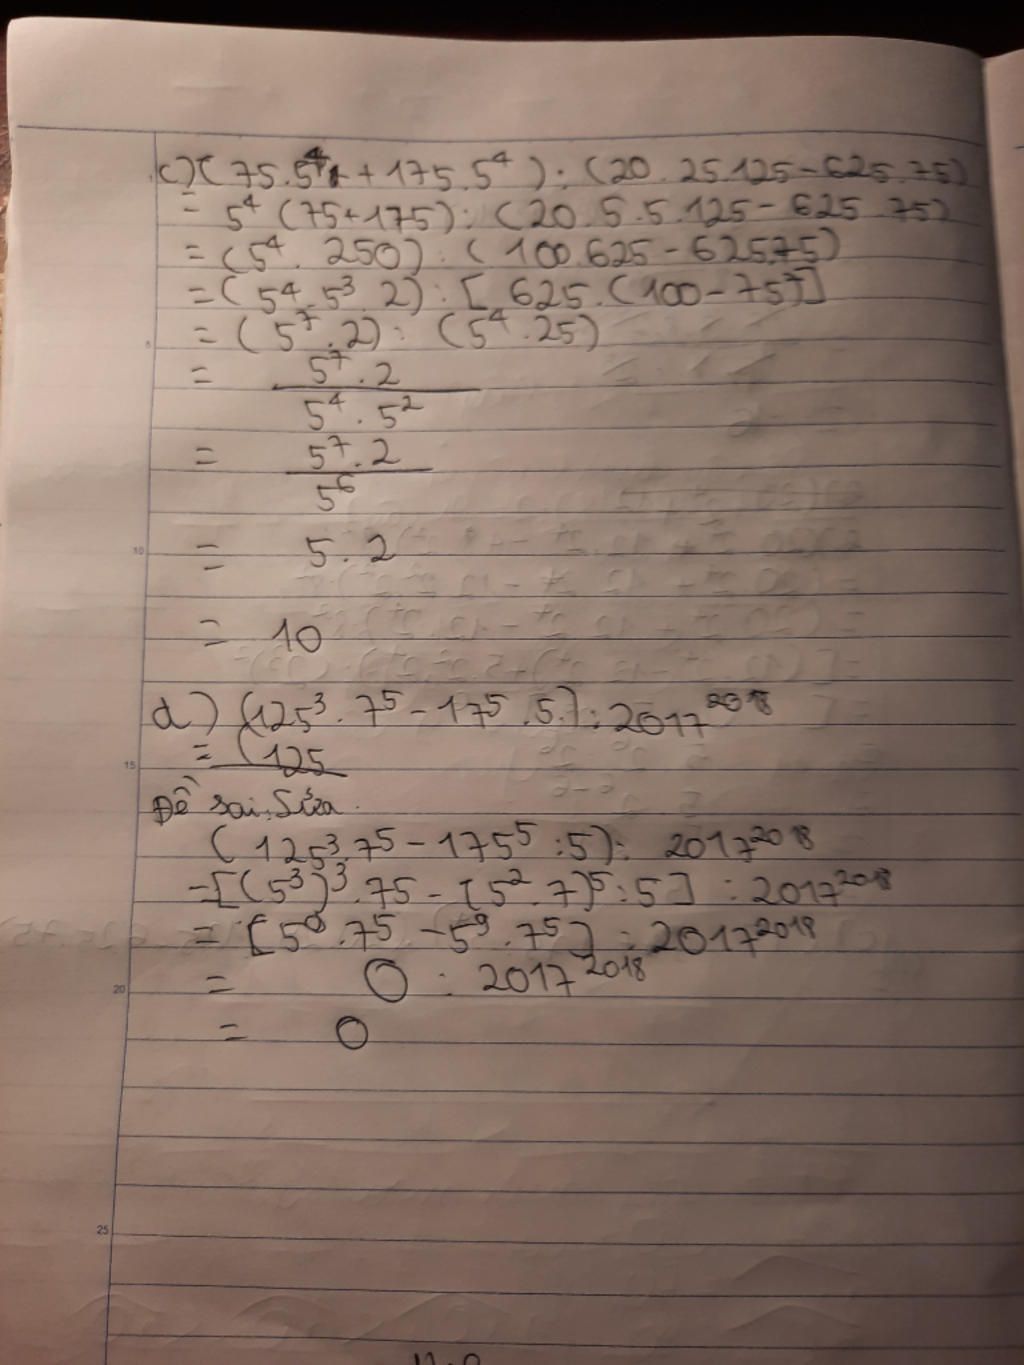 c) (75.5⁴ + 175.5⁴) : (20.25.125 - 625.75)
= 5⁴ (75+175) : (20.5.5.125 - 625.75)
= (5⁴. 250) : (100.625 - 625.75)
= (5⁴.5³.2) : [625.(100-75)]
= (5⁷.2) : (5⁴.25)
= 5⁷.2
5⁴.5²
= 5⁷.2
5⁶
= 5.2
= 10
d) (125³.7⁵ - 17⁵.5) : 2017²⁰¹⁸
= (125
Đề sai. Sửa.
(125³.7⁵ - 175⁵ : 5) : 2017²⁰¹⁸
=[(5³)³.75 - (5².7)⁵ : 5] : 2017²⁰¹⁸
= [5⁹.7⁵ - 5⁹.7⁵] : 2017²⁰¹⁸
= 0 : 2017²⁰¹⁸
= 0
5
10
15
20
25